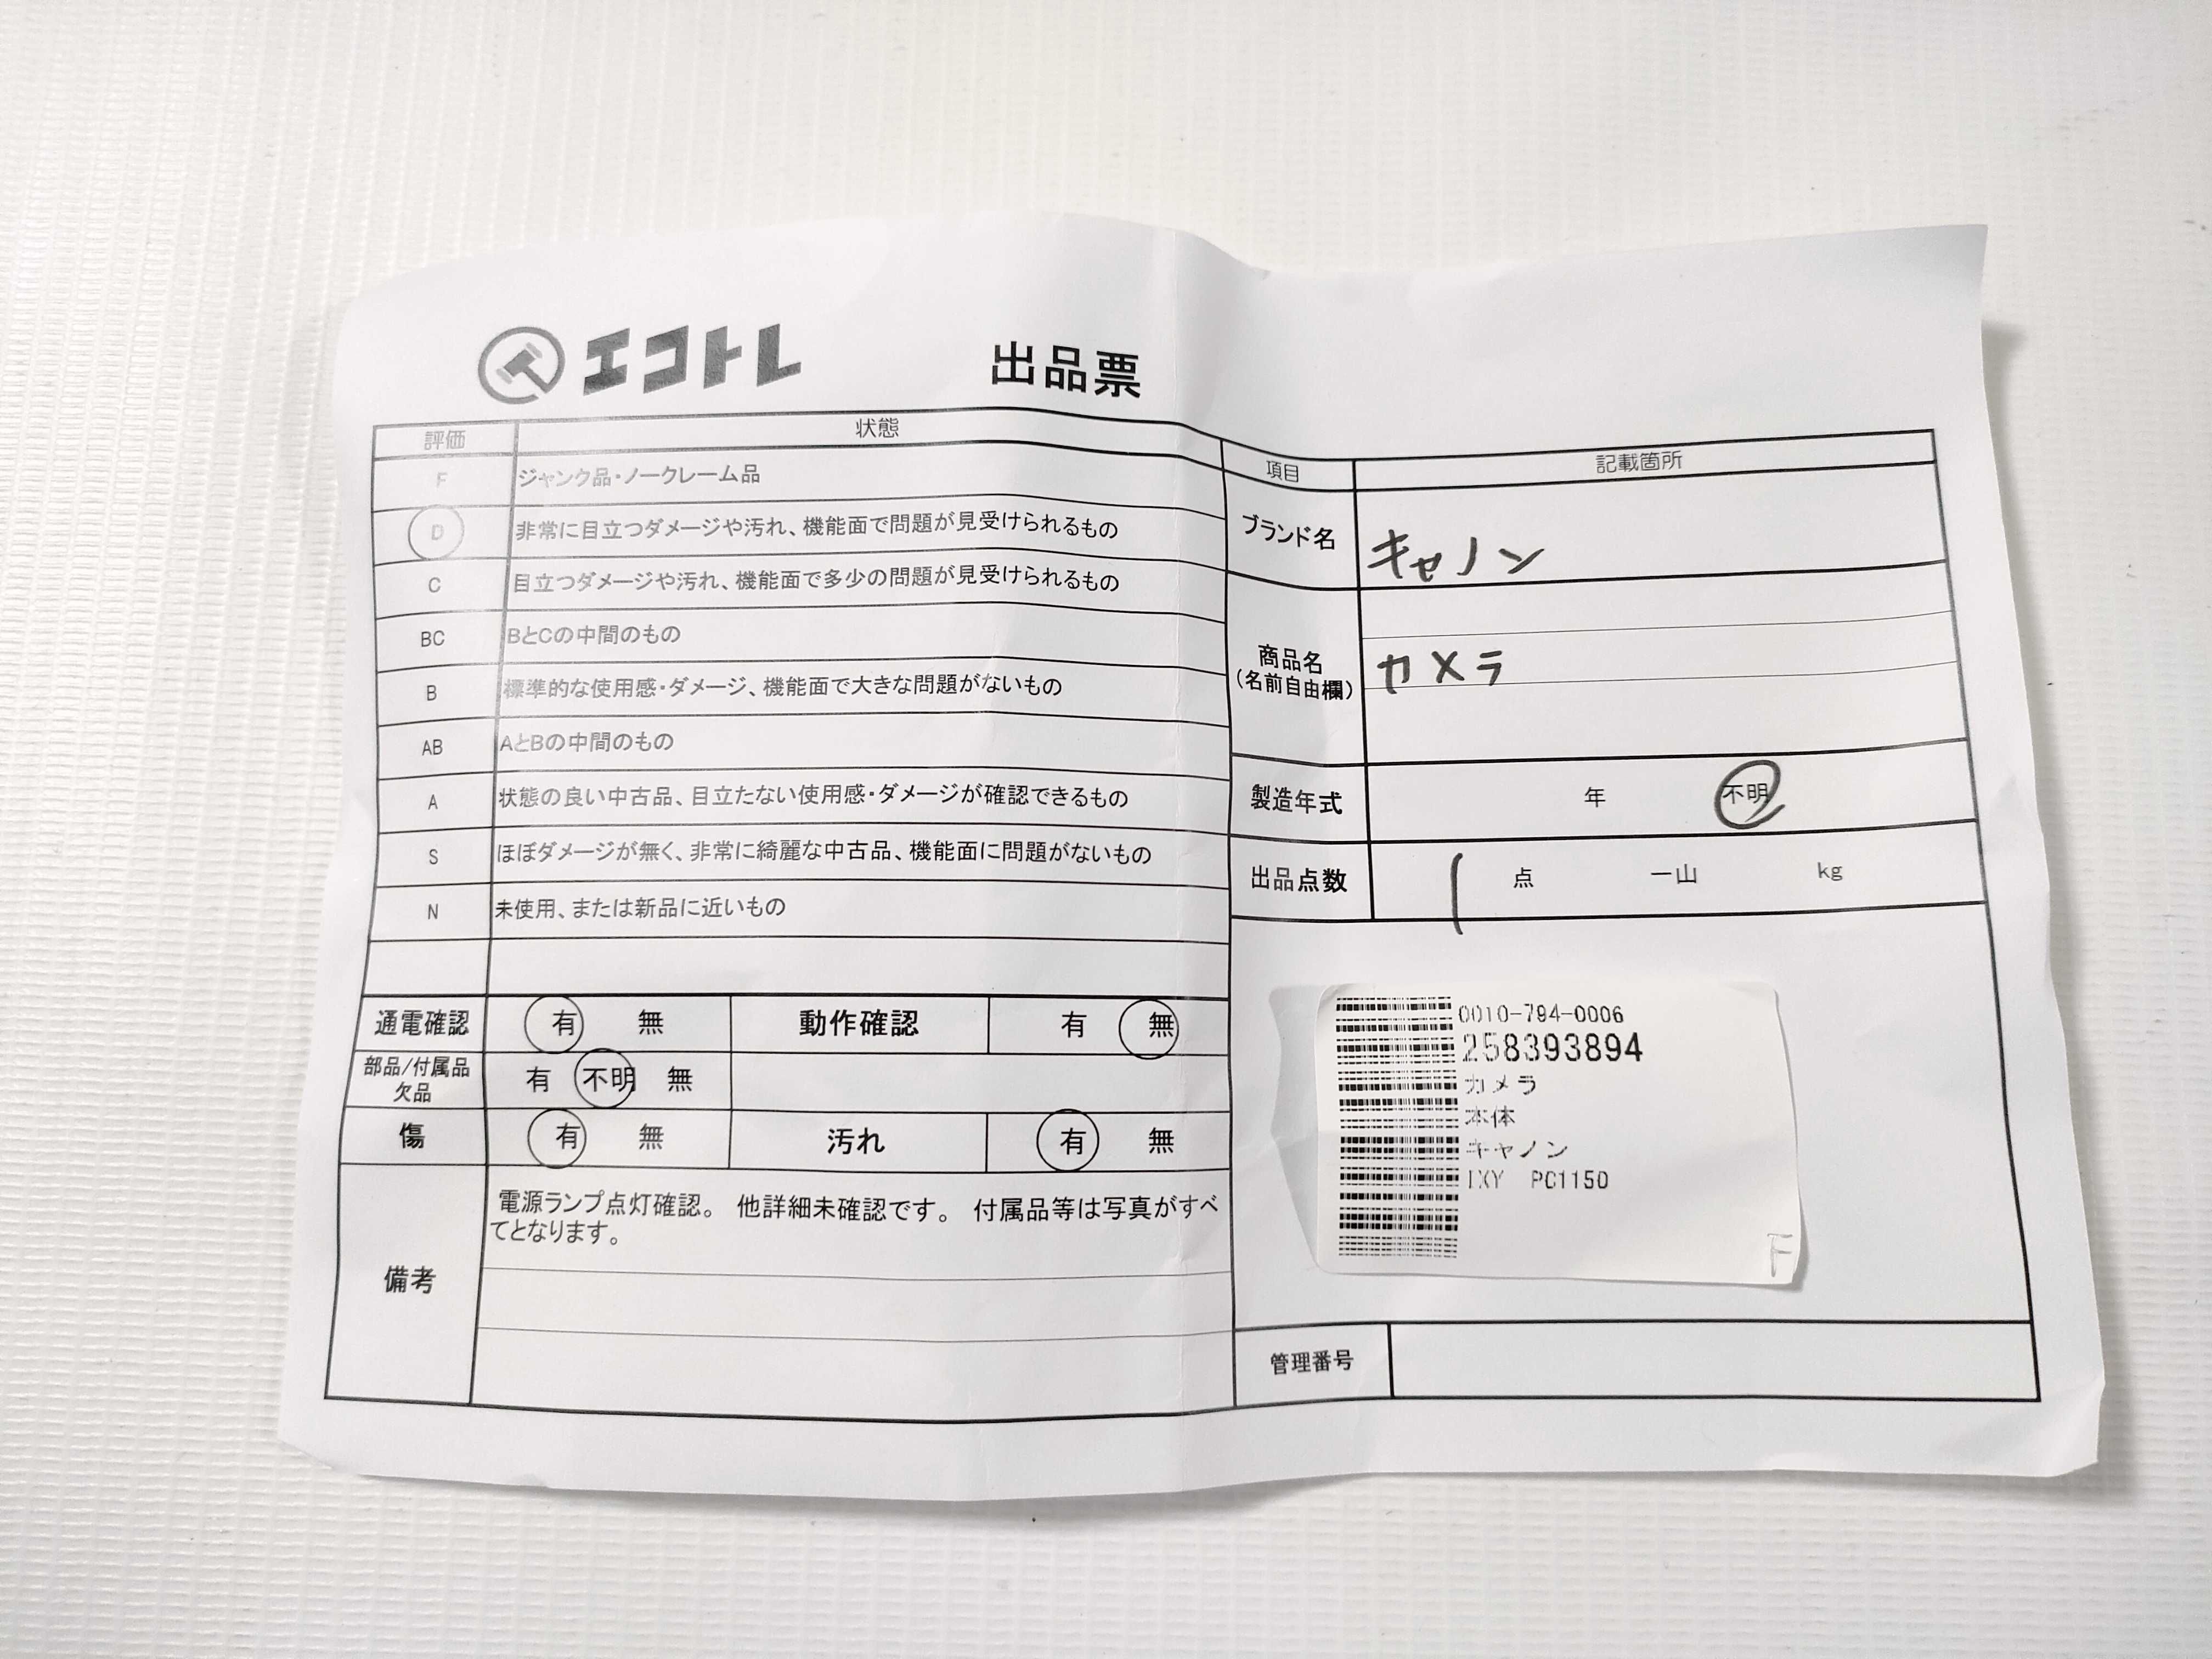 エコトレ
出品票
評価 状態
F ジャンク品・ノークレーム品
D 非常に目立つダメージや汚れ、機能面で問題が見受けられるもの
C 目立つダメージや汚れ、機能面で多少の問題が見受けられるもの
BC BとCの中間のもの
B 標準的な使用感・ダメージ、機能面で大きな問題がないもの
AB AとBの中間のもの
A 状態の良い中古品、目立たない使用感・ダメージが確認できるもの
S ほぼダメージが無く、非常に綺麗な中古品、機能面に問題がないもの
N 未使用、または新品に近いもの
通電確認 有 無 動作確認 有 無
部品/付属品
欠品
有 不明 無
傷 有 無 汚れ 有 無
備考
電源ランプ点灯確認。 他詳細未確認です。 付属品等は写真がすべ
てとなります。
項目 記載箇所
ブランド名 キャノン
商品名
(名前自由欄)
カメラ
製造年式 年 不明
出品点数 1 点 一山 kg
0010-794-0006
258393894
カメラ
本体
キャノン
IXY PC1150
F
管理番号